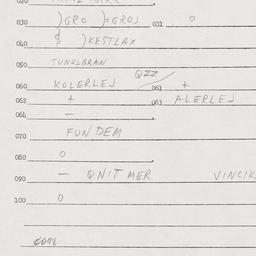 030 )GRO )=GROJ 031 0
040 $ )KESTLAX
050 TUNKLBRAN
QZZ
060 KOLERLEJ 061 +
062 + 063 ALERLEJ
064 —
070 FUNDEM
080 0
090 — QNITMER VINCIK
100 0